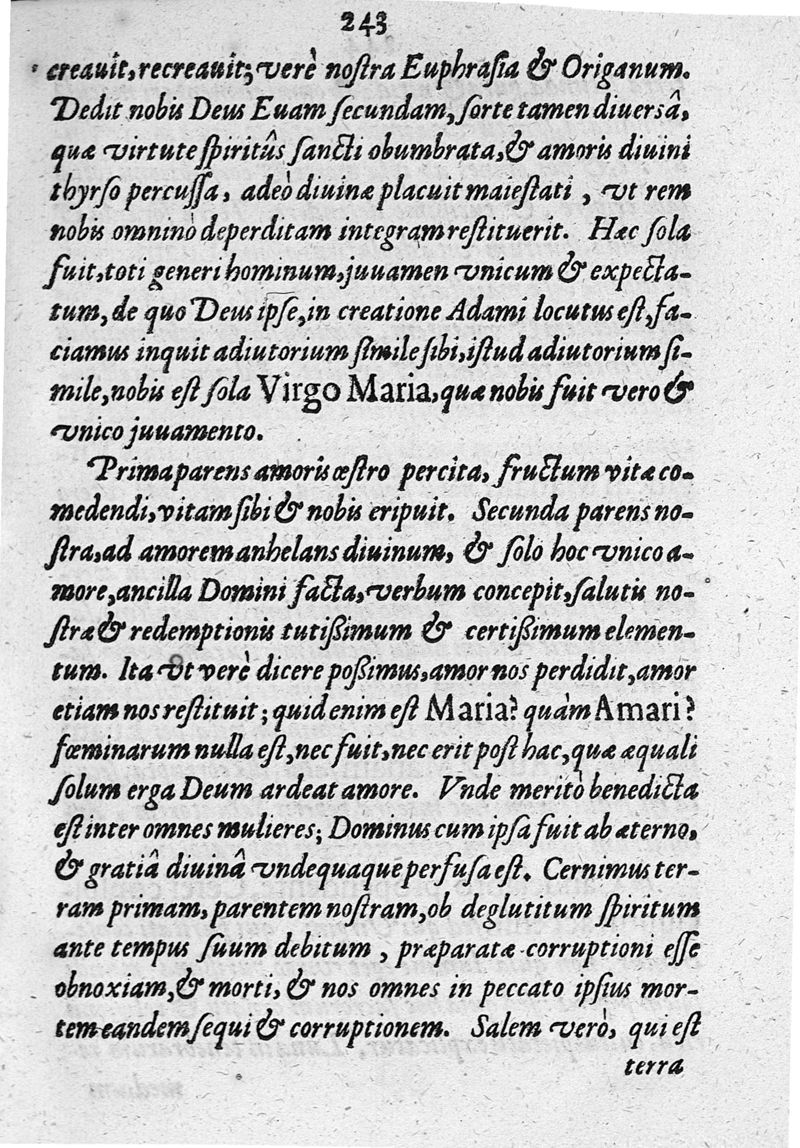 243
creauit, recreauit; verè noſtra Euphraſia & Origanum.
Dedit nobis Deus Euam ſecundam, ſorte tamen diuersâ,
quæ virtute ſpiritûs ſancti obumbrata, & amoris diuini
thyrſo percuſſa, adeò diuinæ placuit maieſtati, vt rem
nobis omninò deperditam integram reſtituerit. Hæc ſola
fuit, toti generi hominum, juuamen vnicum & expecta-
tum, de quo Deus ipſe, in creatione Adami locutus eſt, fa-
ciamus inquit adiutorium ſimile ſibi, iſtud adiutorium ſi-
mile, nobis eſt ſola Virgo Maria, quæ nobis fuit vero &
vnico juuamento.
Prima parens amoris œſtro percita, fructum vitæ co-
medendi, vitam ſibi & nobis eripuit. Secunda parens no-
ſtra, ad amorem anhelans diuinum, & ſolo hoc vnico a-
more, ancilla Domini facta, verbum concepit, ſalutis no-
ſtræ & redemptionis tutißimum & certißimum elemen-
tum. Ita vt verè dicere poßimus, amor nos perdidit, amor
etiam nos reſtituit; quid enim eſt Maria? quàm Amari?
fœminarum nulla eſt, nec fuit, nec erit poſt hac, quæ æquali
ſolum erga Deum ardeat amore. Vnde meritò benedicta
eſt inter omnes mulieres; Dominus cum ipſa fuit ab æterno,
& gratiâ diuinâ vndequaque perfuſa eſt. Cernimus ter-
ram primam, parentem noſtram, ob deglutitum ſpiritum
ante tempus ſuum debitum, præparatæ corruptioni eſſe
obnoxiam, & morti, & nos omnes in peccato ipſius mor-
tem eandem ſequi & corruptionem. Salem verò, qui eſt
terra